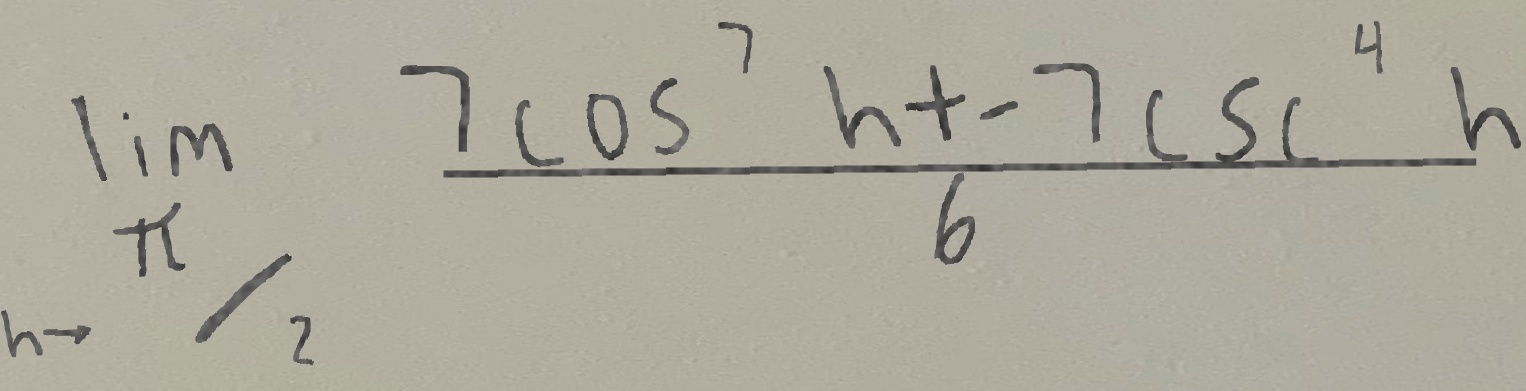 lim h→ π/2 (7cos^7 h+-7csc^4 h)/6